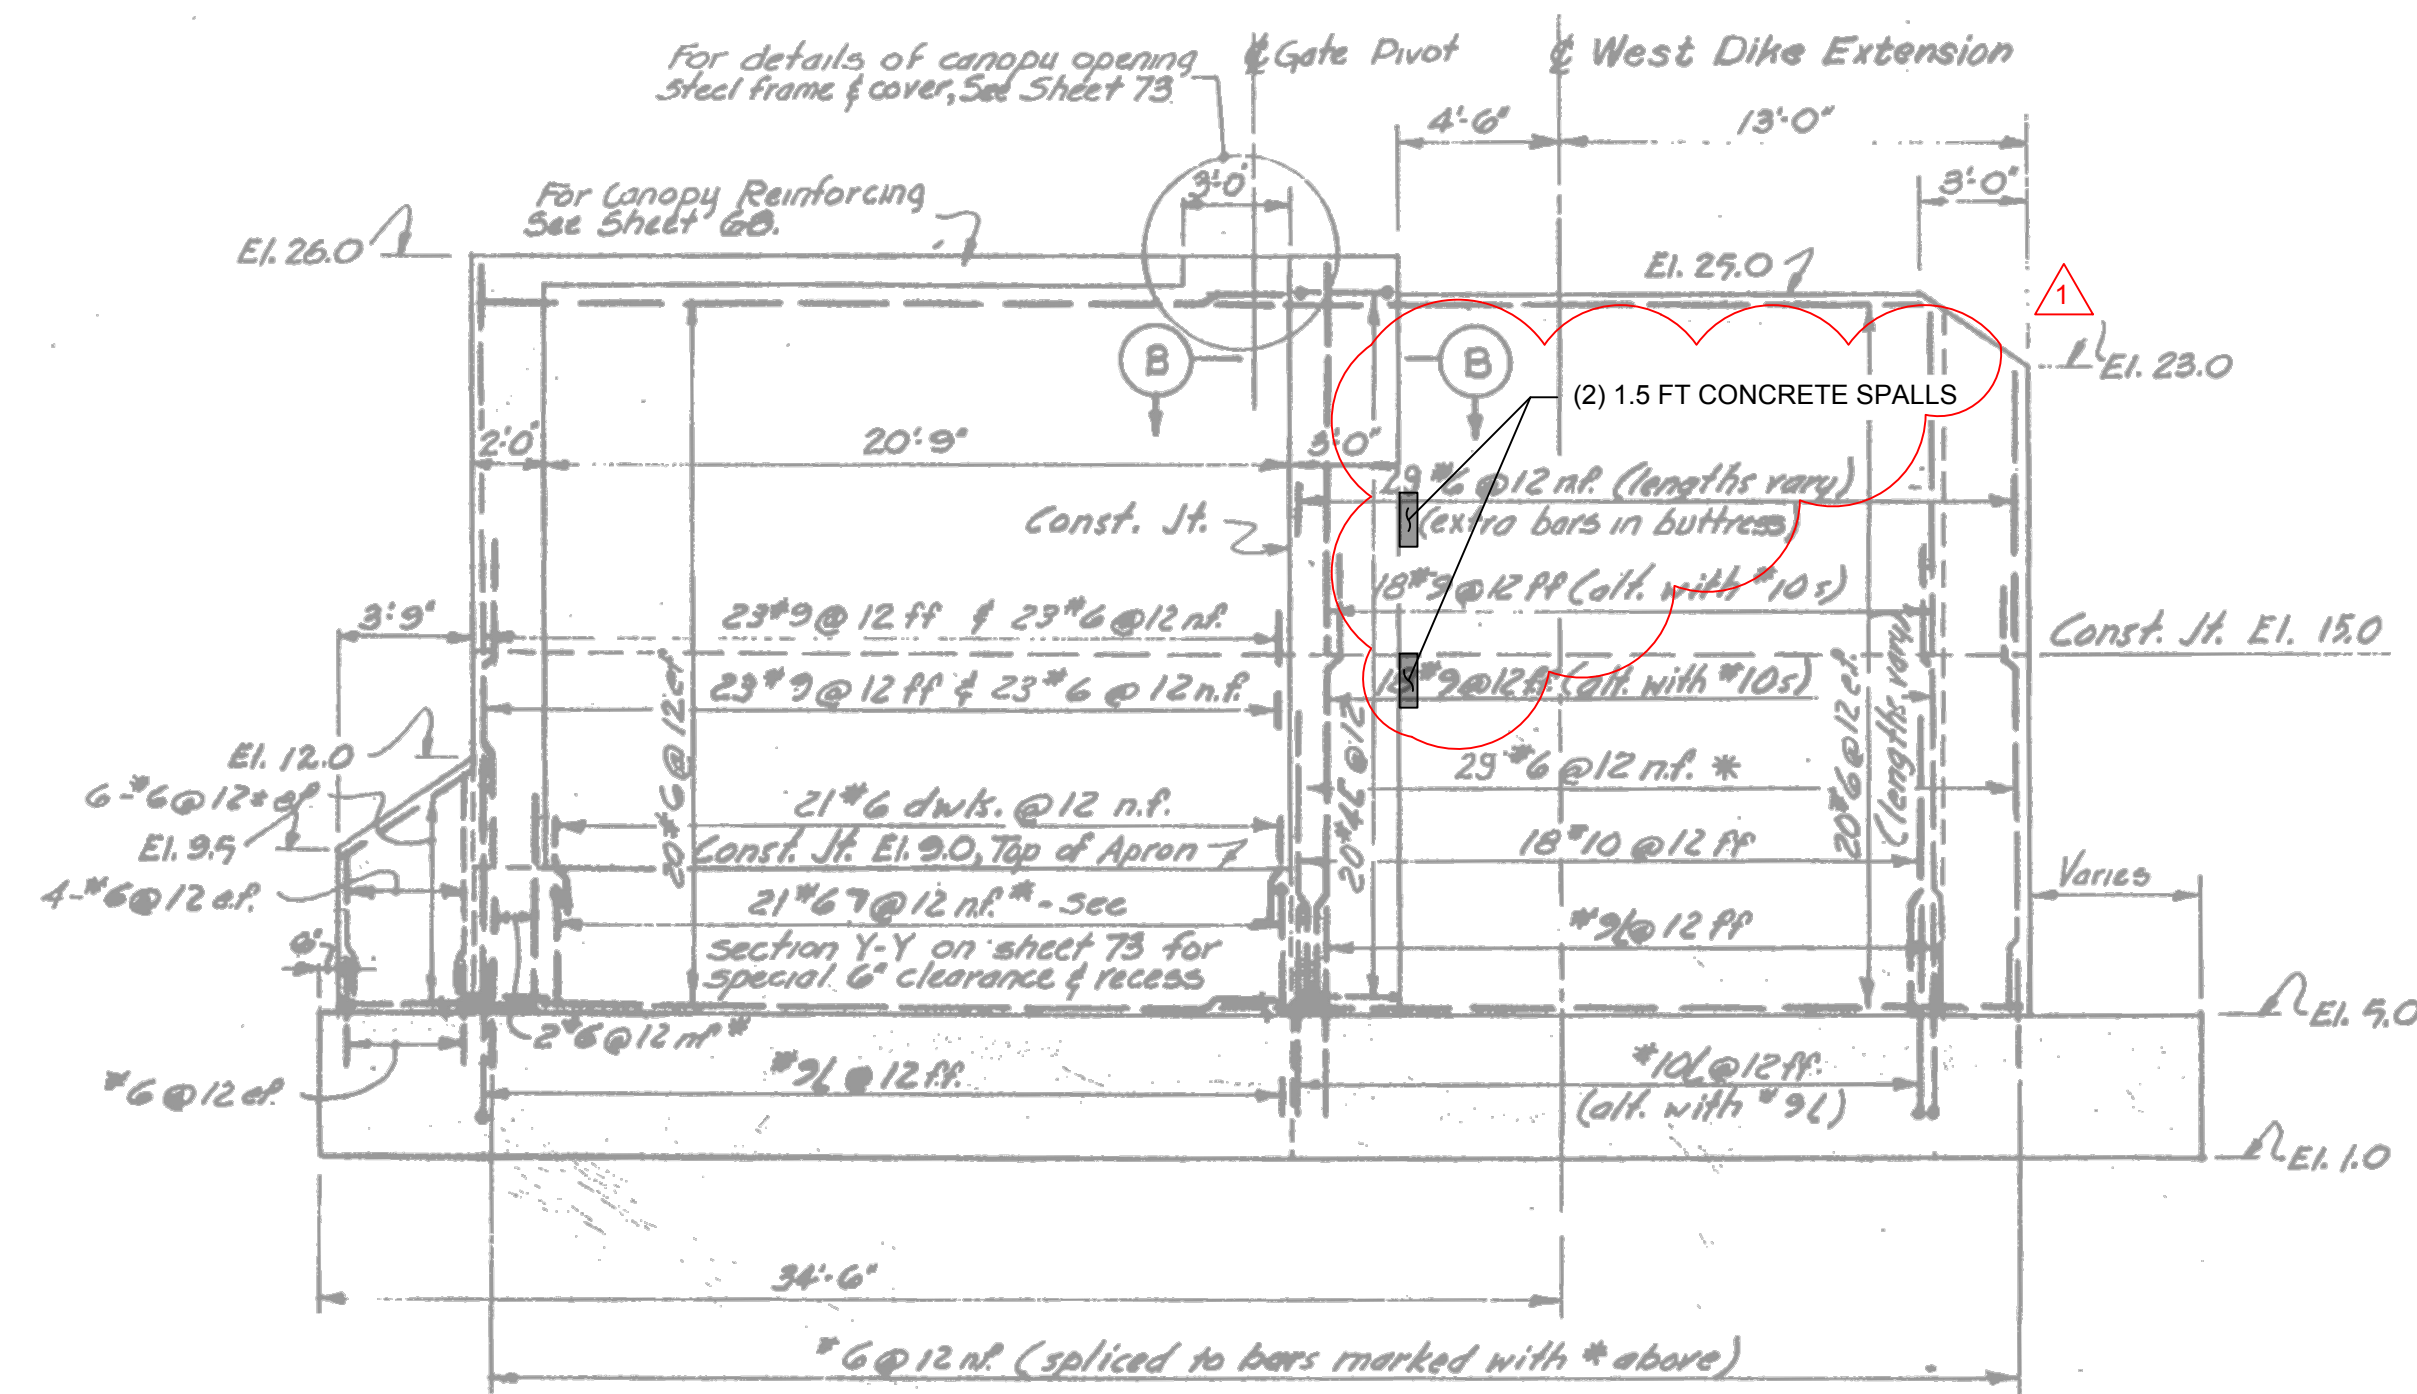 For details of canopy opening
steel frame & cover, See Sheet 73
℄ Gate Pivot
℄ West Dike Extension
4'-6"
13'-0"
3'-0"
3'-0"
For Canopy Reinforcing
See Sheet 68.
El. 26.0
El. 25.0
1
El. 23.0
B
B
(2) 1.5 FT CONCRETE SPALLS
2'-0"
20'-9"
3'-0"
29 #6 @ 12 n.f. (lengths vary)
(extra bars in buttress)
Const. Jt.
18 #9 @ 12 ff (alt. with #10s)
3'-9"
23 #9 @ 12 ff & 23 #6 @ 12 n.f.
Const. Jt. El. 15.0
23 #9 @ 12 ff & 23 #6 @ 12 n.f.
18 #9 @ 12 ff (alt. with #10s)
20 #6 @ 12 ef
20 #4 @ 12
20 #6 @ 12 ef.
(lengths vary)
El. 12.0
29 #6 @ 12 n.f. *
6-#6 @ 12 ef
21 #6 dwls. @ 12 n.f.
El. 9.5
Const. Jt. El. 9.0, Top of Apron
18 #10 @ 12 ff
4-#6 @ 12 e.f.
Varies
21 #6 7 @ 12 n.f. * - see
section Y-Y on sheet 73 for
special 6" clearance & recess
#9L @ 12 ff
6"
El. 5.0
2 #6 @ 12 nf *
#6 @ 12 ef.
#9L @ 12 f.f.
#10L @ 12 ff.
(alt. with #9L)
El. 1.0
34'-6"
#6 @ 12 nf. (spliced to bars marked with * above)